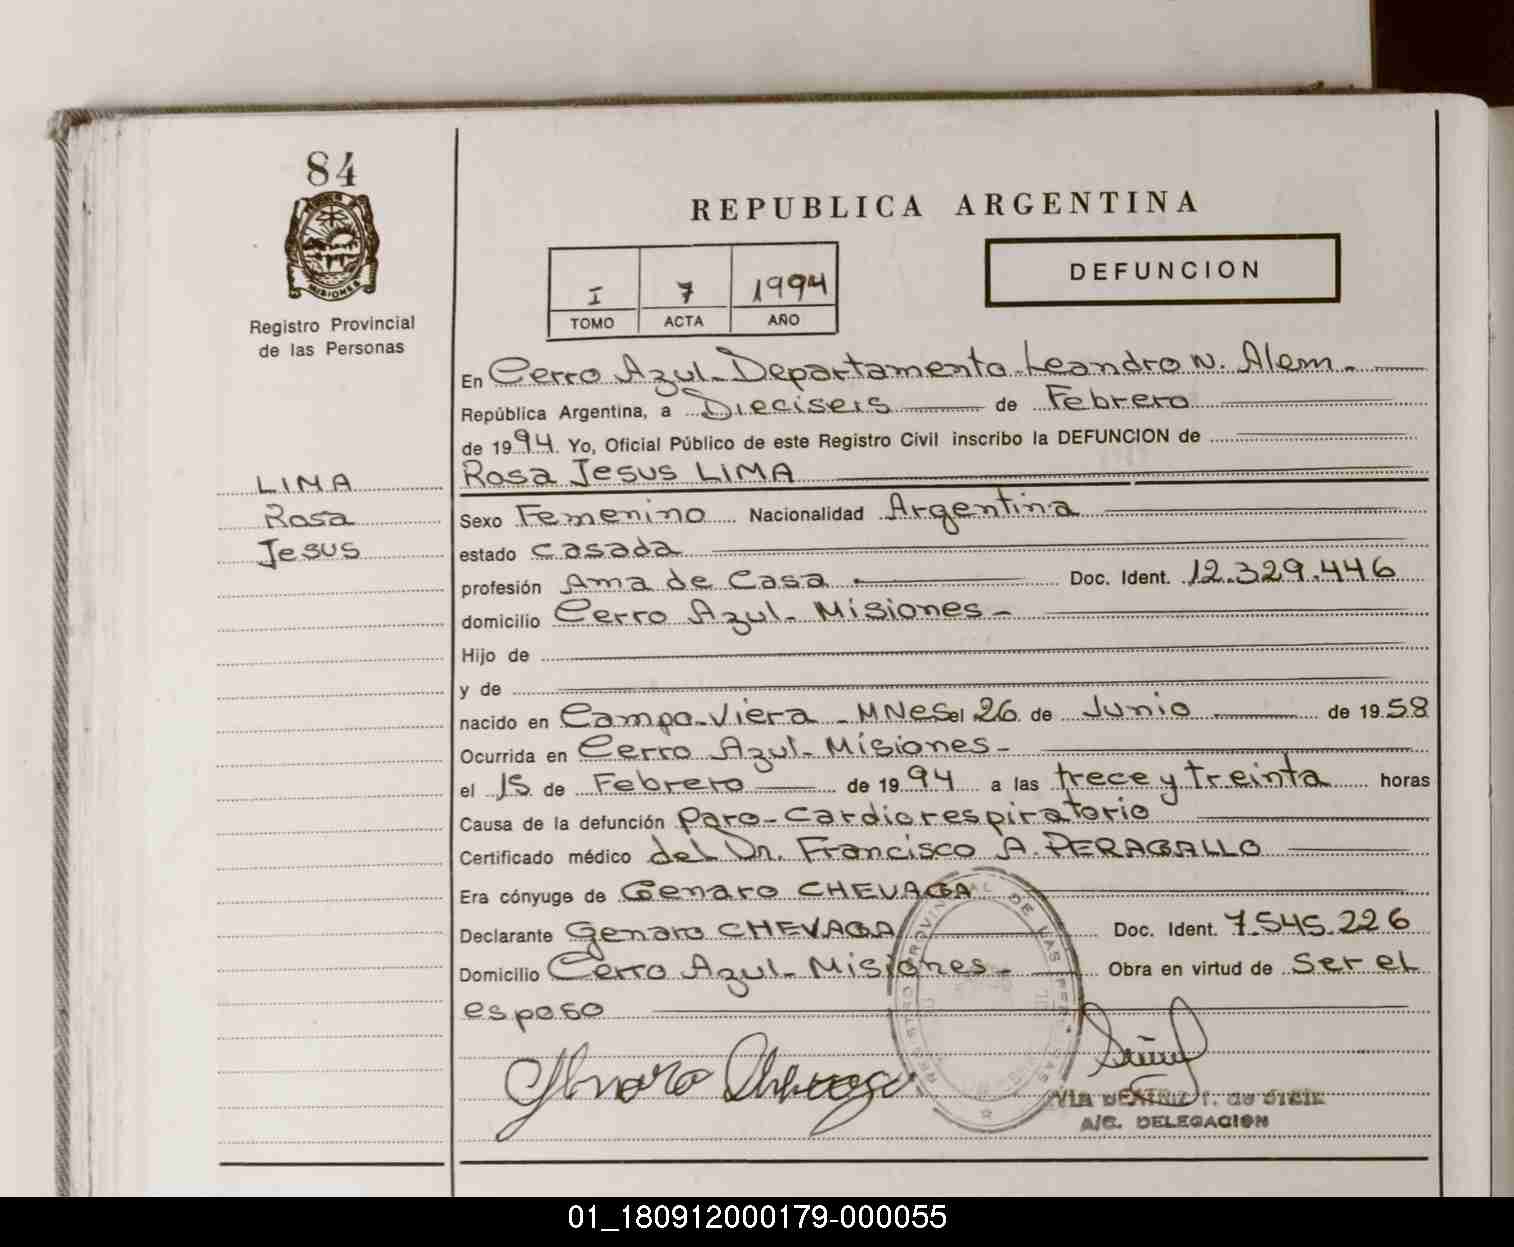 84
MISIONES
Registro Provincial
de las Personas
REPUBLICA ARGENTINA
DEFUNCION
I 7 1994
TOMO ACTA AÑO
En Cerro Azul - Departamento Leandro N. Alem. -
República Argentina, a Dieciseis de Febrero
de 1994. Yo, Oficial Público de este Registro Civil inscribo la DEFUNCION de
Rosa Jesus LIMA
LIMA
Rosa
Jesus
Sexo Femenino Nacionalidad Argentina
estado casada
profesión Ama de Casa Doc. Ident. 12.329.446
domicilio Cerro Azul - Misiones -
Hijo de
y de
nacido en Campo Viera - MNes el 26 de Junio de 1958
Ocurrida en Cerro Azul - Misiones -
el 15 de Febrero de 1994 a las trece y treinta horas
Causa de la defunción Paro-Cardiorespiratorio
Certificado médico del Dr. Francisco A. PERAGALLO
Era cónyuge de Genaro CHEVAGA
Declarante Genaro CHEVAGA Doc. Ident. 7.545.226
Domicilio Cerro Azul - Misiones - Obra en virtud de ser el
esposo
A/C. DELEGACION
01_180912000179-000055